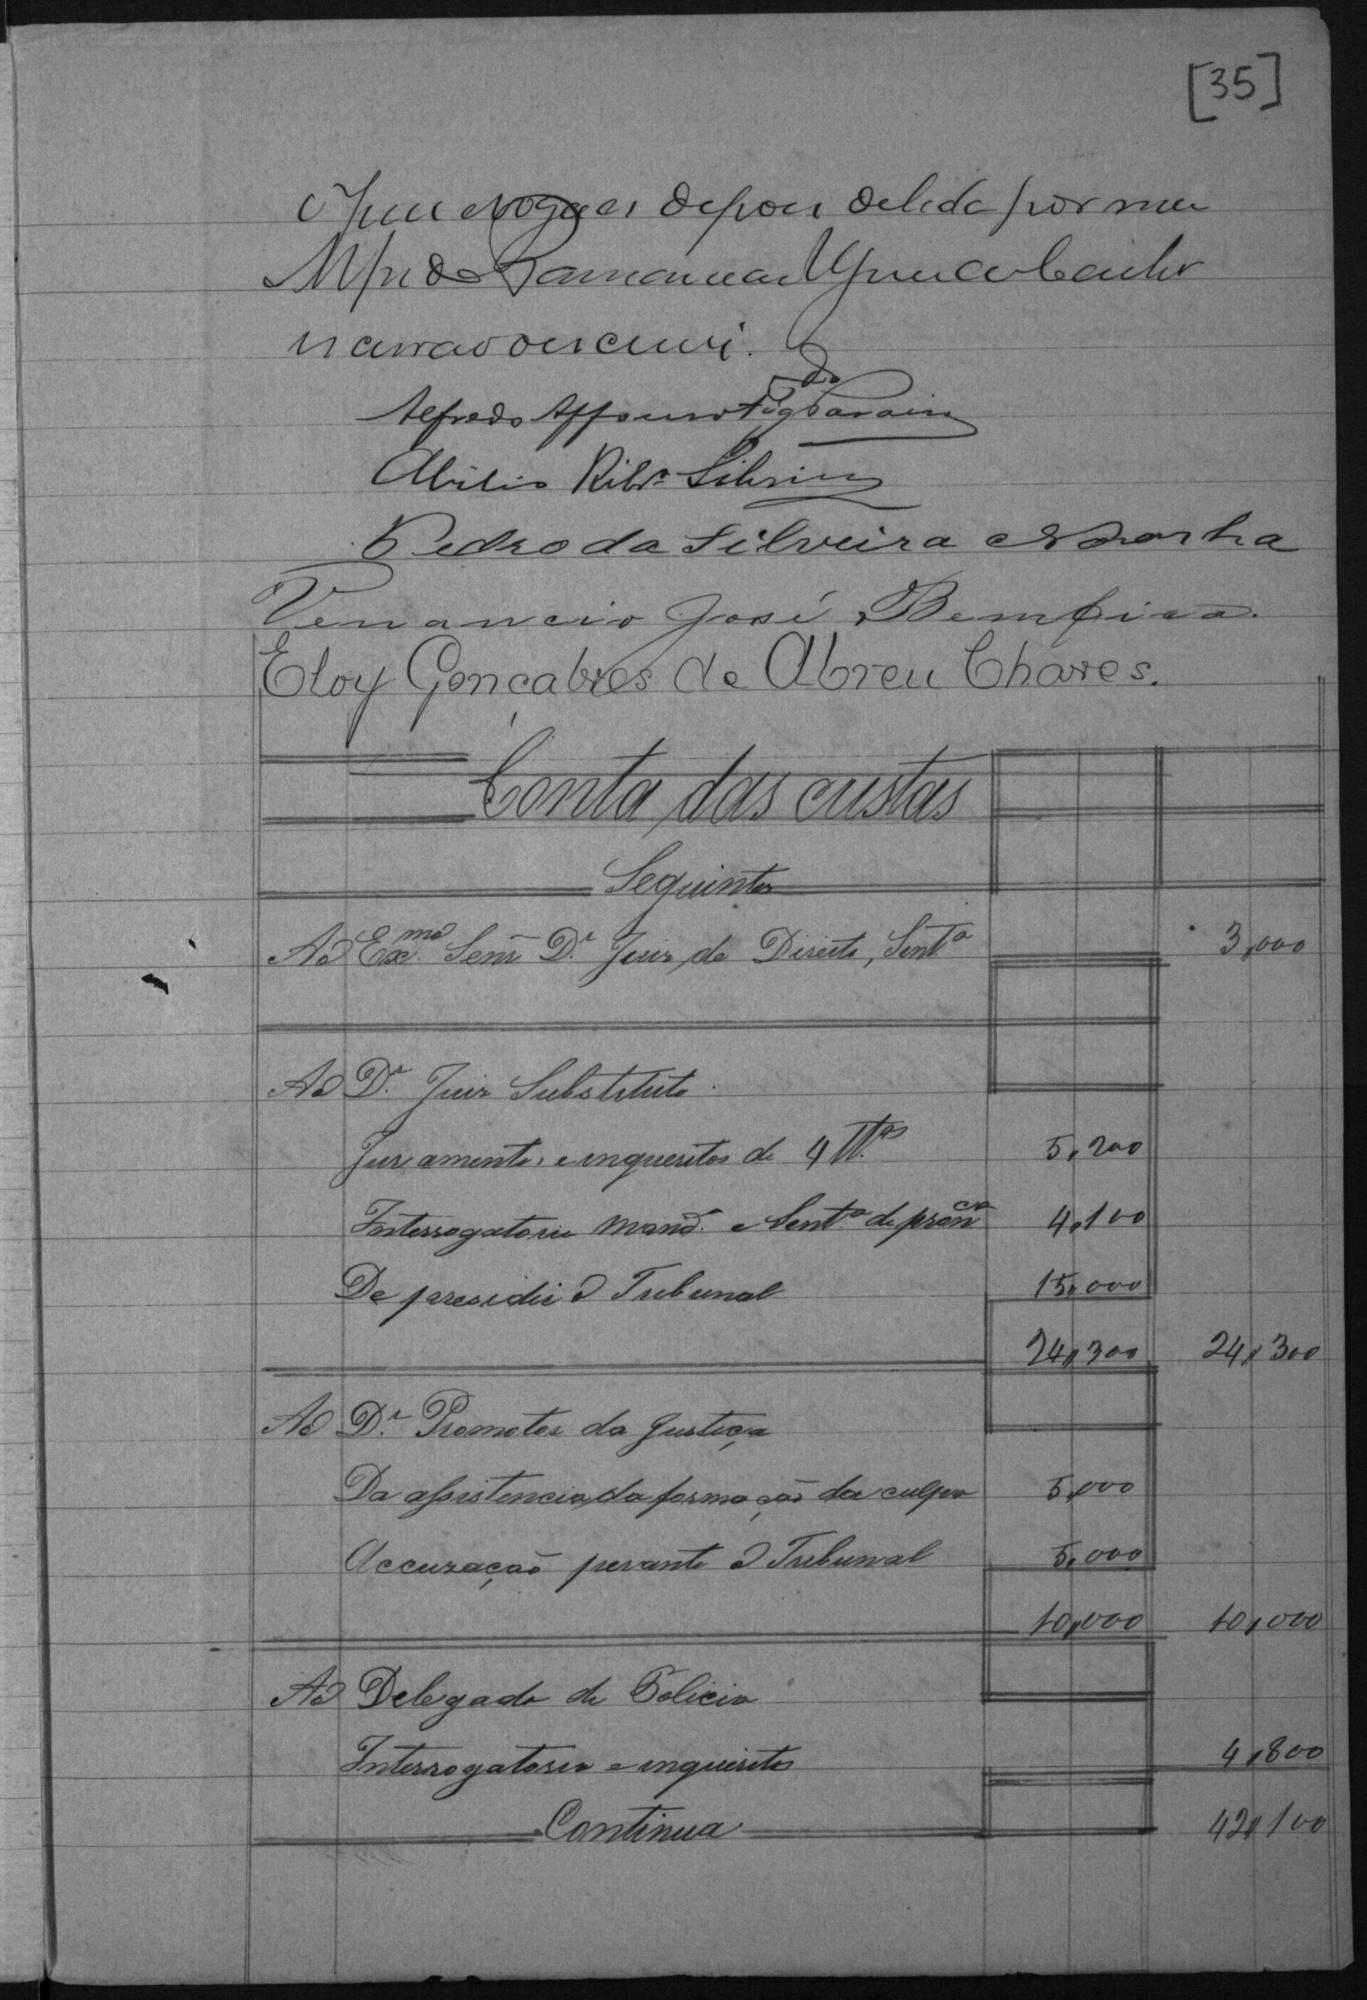 [35]
depois de lida por mim
Alfredo Affonso
Abilio Ribr.º
Pedro da Silveira Noronha
Venancio José Bemfica.
Eloy Gonçalves de Abreu Chaves.
Conta das custas
Seguintes
Ao Exmo. Senr Dr. Juiz de Direito, Senta 3,000
Ao Dr. Juiz Substituto.
Juramento, e inqueritos de 4 Ttas. 5,200
Interrogatorio Mand.º e Senta. de pronca 4,100
De presidir o Tribunal 15,000
24,300 24,300
Ao Dr. Promotor da Justiça
Da assistencia da formação da culpa 5,000
Accuzação perante o Tribunal 5,000
10,000 10,000
Ao Delegado de Policia
Interrogatorio e inquerito 4,800
Continua 42,100